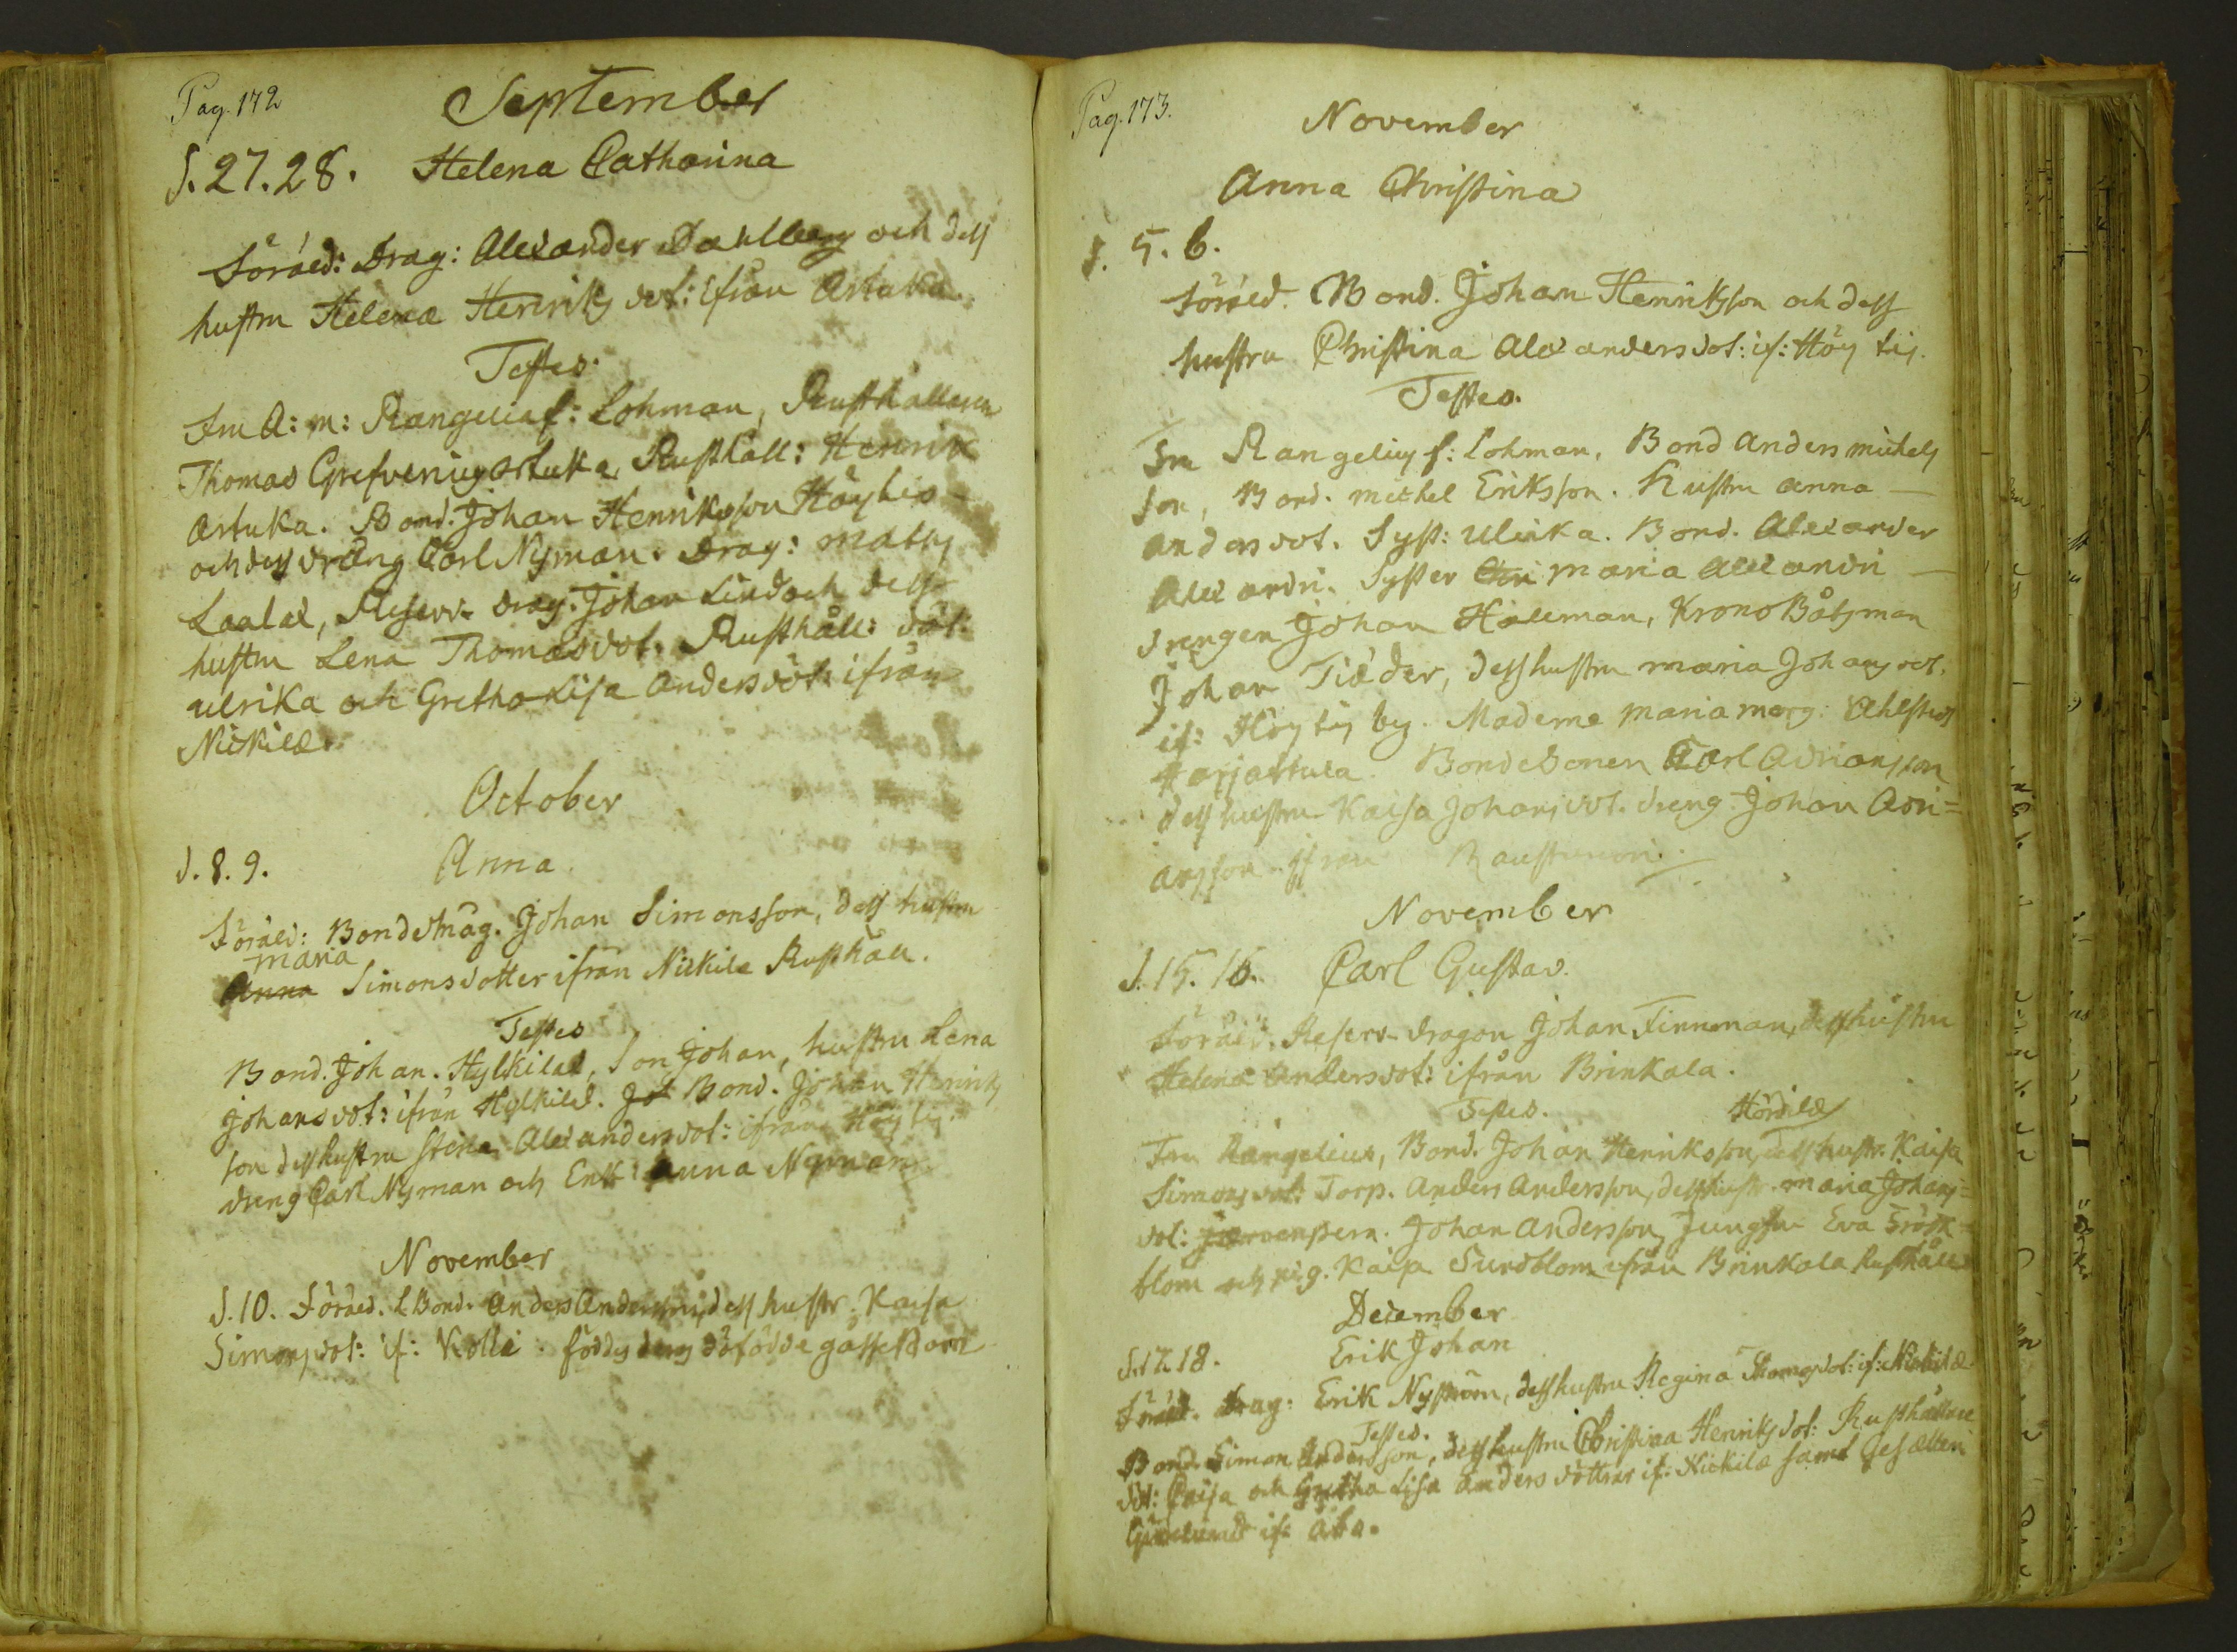 Pag. 172
September
d. 27. 28. Helena Catharina
Föräld: Drag: Alexander Dahlberg och dess
hustru Helena Henriks dot: ifrån Artuka.
Testes.
Fru A: m: Rangelia f: Lohman, Rusthållaren
Thomas Grefvenius Artuka, Rusthåll: Henrik
Artuka. Bond. Johan Henriksson Höytis
och dess dräng Carl Nyman. Drag: Matts
Laalax, Reserv. Drag. Johan Lind och dess
hustru Lena Thomasdot. Rusthåll: döt:
Ulrika och Gretha Lisa Andersdöt: ifrån
Nickilä.
October
d. 8. 9. Anna.
Föräld: Bondemåg. Johan Simonsson, dess hustru
maria
Anna Simonsdotter ifrån Nickila Rusthåll.
Testes
Bond. Johan. Hylkilä, Son Johan, hustru Lena
Johansdot: ifrån Hylkilä. Bond. Johan Henriks
son dess hustru Stina Alexandersdot: ifrån Höytis.
dreng Carl Nyman och Enk: Anna Nyman
November
d. 10. Föräld. Bond. Anders Andersson, dess hustr. Kaisa
Simonsdot: if: Kolla. föddes deras dödfödde gossebarn
Pag. 173.
November
Anna Christina
d. 5. 6.
Föräld. Bond. Johan Henriksson och dess
hustru Christina Alexandersdot: if: Höytis.
Testes.
Fru Rangelius f: Lohman, Bond Anders Michels
son, Bond. Michel Eriksson. Hustru Anna
Andersdot. Syst: Ulrika. Bond. Alexander
Alexandri. Syster Maria Alexandri
drengen Johan Halleman, Krono Båtsman
Johan Tiäder, dess hustru Maria Johansdot.
if: Höytis by. Madame Maria Marg: Ahlstedt
Harjattula. Bondesonen Carl Adriansson
dess hustru Kaisa Johansdot. dreng Johan Adri=
ansson ifrån
November
d. 15. 16. Carl Gustav.
Föräld. Reserv-dragon Johan Finnman, dess hustru
Helena Andersdot: ifrån Brinkala.
Testes.
Fru Rangelius, Bond. Johan Henriksson, dess hustr. Kaisa
Simonsdot: Torp. Anders Andersson, dess hustr. Maria Johans=
dot: Johan Andersson, Jungfru Eva
blom och pig. Kaisa Sundblom ifrån Brinkala Rusthåll
December
d. 17. 18. Erik Johan
Föräld. Drag: Erik Nyström, dess hustru Regina Thomasdot: if: Nickilä
Testes.
Bond. Simon Andersson, dess hustru Christina Henriksdot: Rusthållare
döt: Caisa och Gretha Lisa Andersdöttrar if: Nickila samt Gesällen
if: Åbo.